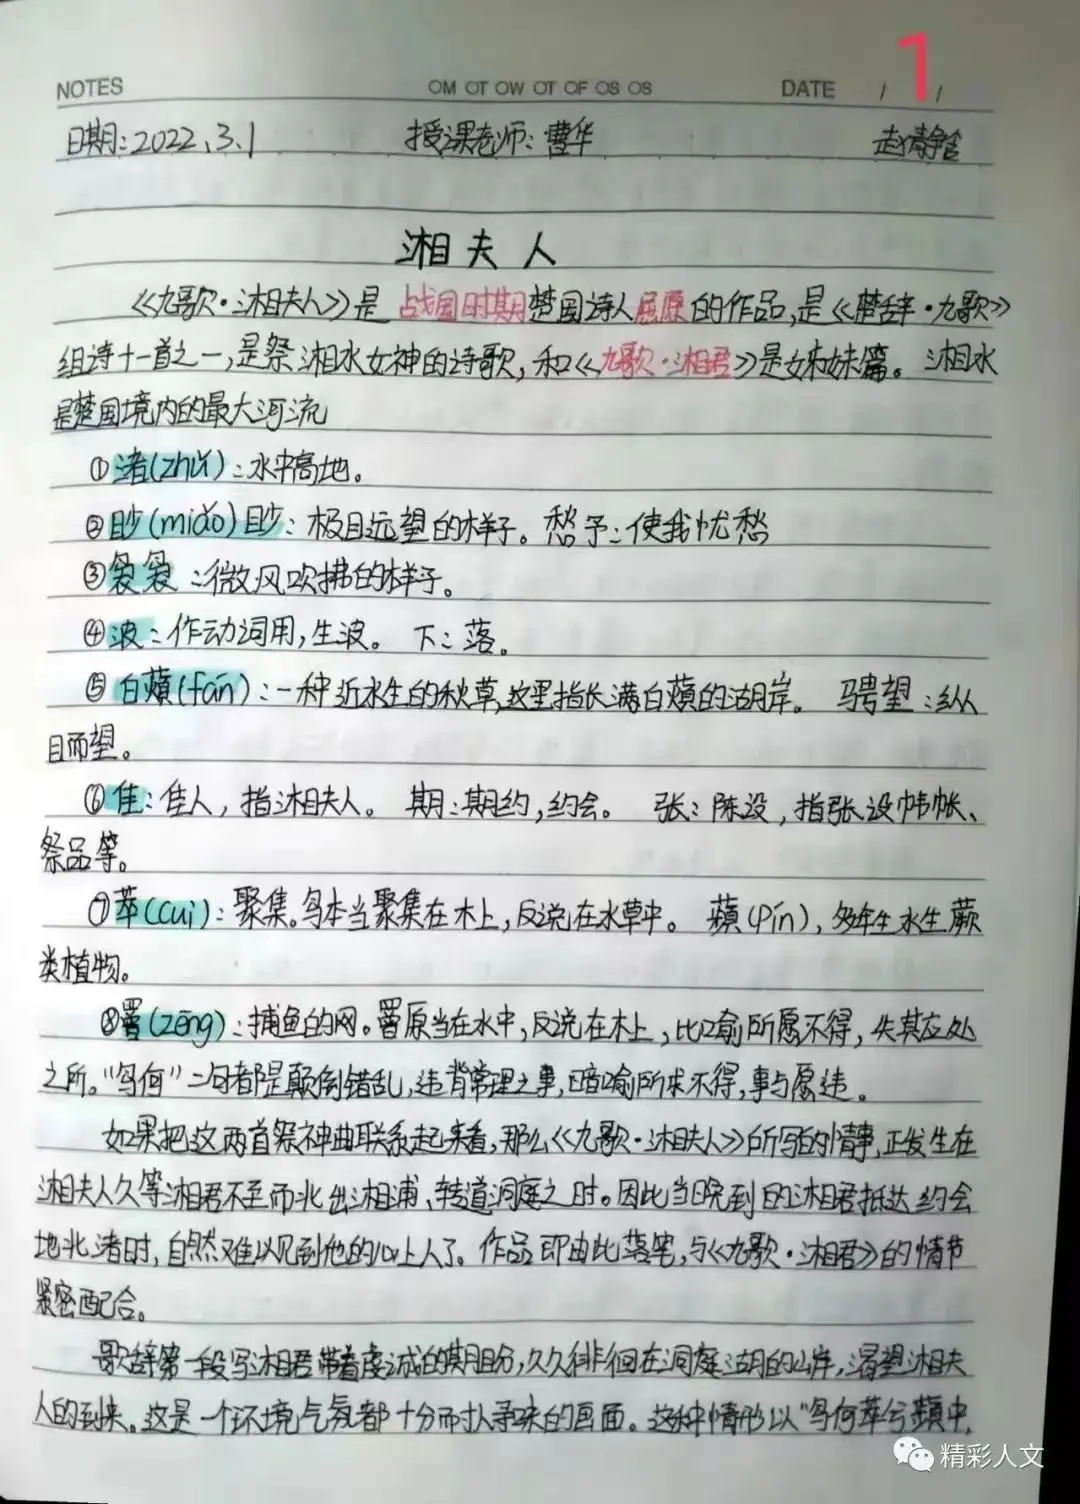 1
NOTES OM OT OW OT OF OS OS DATE / /
日期:2022.3.1 授课老师:曹华 赵静含
湘夫人
《九歌·湘夫人》是战国时期楚国诗人屈原的作品,是《楚辞·九歌》
组诗十一首之一,是祭湘水女神的诗歌,和《九歌·湘君》是姊妹篇。湘水
是楚国境内的最大河流
①渚(zhǔ):水中高地。
②眇(miǎo)眇:极目远望的样子。愁予:使我忧愁
③袅袅:微风吹拂的样子。
④波:作动词用,生波。下:落。
⑤白薠(fán):一种近水生的秋草,这里指长满白薠的湖岸。骋望:纵
目而望。
⑥佳:佳人,指湘夫人。期:期约,约会。张:陈设,指张设帏帐、
祭品等。
⑦萃(cuì):聚集。鸟本当聚集在木上,反说在水草中。蘋(pín),多年生水生蕨
类植物。
⑧罾(zēng):捕鱼的网。罾原当在水中,反说在木上,比喻所愿不得,失其应处
之所。"鸟何"二句都是颠倒错乱,违背常理之事,暗喻所求不得,事与愿违。
如果把这两首祭神曲联系起来看,那么《九歌·湘夫人》所写的情事,正发生在
湘夫人久等湘君不至而北出湘浦、转道洞庭之时。因此当晚到的湘君抵达约会
地北渚时,自然难以见到他的心上人了。作品即由此落笔,与《九歌·湘君》的情节
紧密配合。
歌辞第一段写湘君带着虔诚的期盼,久久徘徊在洞庭湖的山岸,渴望湘夫
人的到来。这是一个环境气氛都十分耐人寻味的画面。这种情形以"鸟何萃兮蘋中,
精彩人文